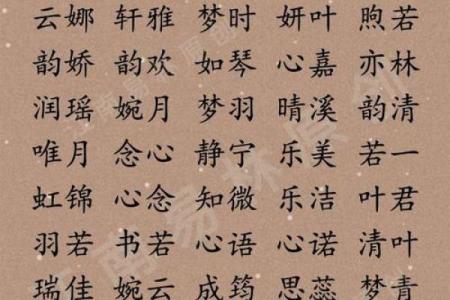 云娜 轩雅 梦时 妍叶 煦若
韵娇 韵欢 如琴 心嘉 亦林
润瑶 婉月 梦羽 晴溪 韵清
唯月 念心 静宁 乐美 若一
虹锦 心念 知微 乐洁 叶君
羽若 书若 心语 心诺 清叶
瑞佳 婉云 成筠 思蕊 梦青